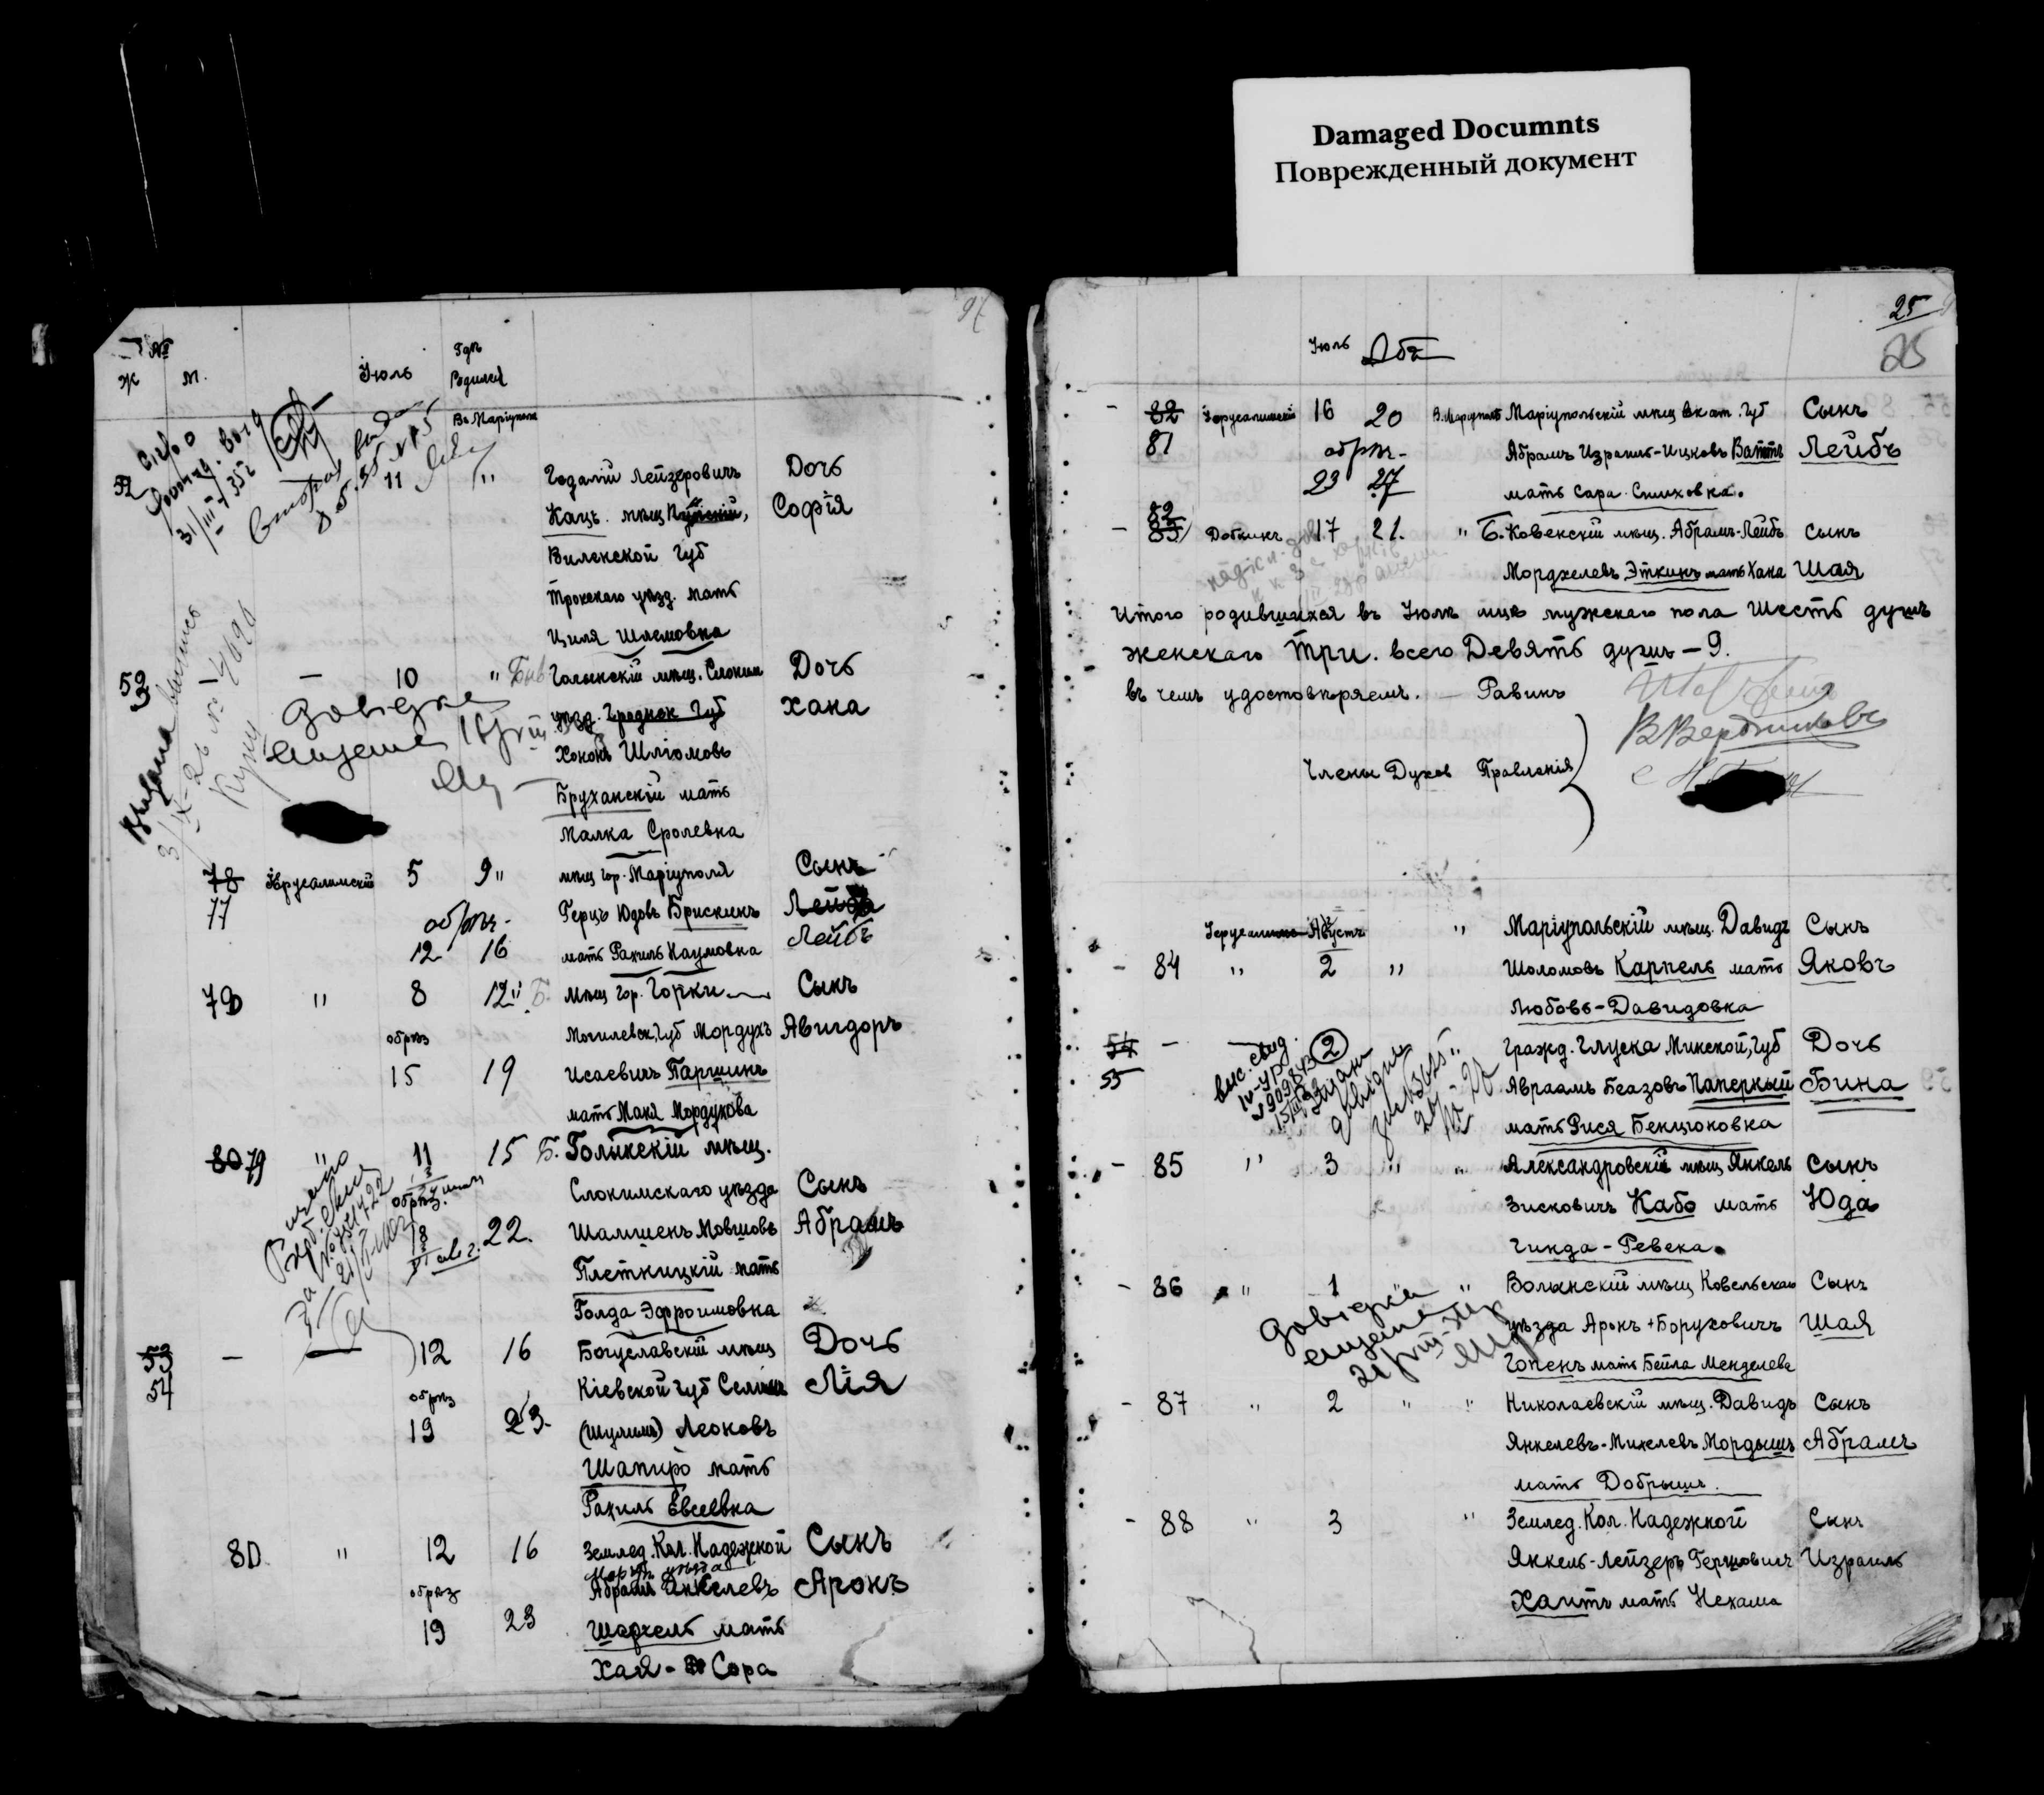 Damaged Documnts
Поврежденный документ
№
Ж м. Іюль Гдѣ Родился
Въ Маріуполѣ
52 11 " Годалій Лейзеровичъ Дочь
Кацъ. мѣщ София
Виленской Губ
Трокскаго уѣзд. мать
Циля Шлемовна
53 — 10 " Голынскій мѣщ. Слоним Дочь
уѣзд. Гроднен Губ Хана
Шліомовъ
Бруханскій мать
Малка Сролевна
Выдана
78 Іерусалимскій 5 9 " мѣщ гор. Маріуполя Сынъ
77 обрѣз. Герцъ Юдовъ Брискинъ Лейба
12 16 мать Рахиль Наумовна Лейбъ
79 " 8 12 " Б. Мѣщ гор. Горки Сынъ
обрѣз Могилевск. Губ Мордухъ Авигдоръ
15 19 Исаевичъ Паршинъ
мать Маня Мордухова
80 79 " 11 15 Б. Голынскій мѣщ.
обрѣз. Слонимскаго уѣзда Сынъ
18 22. Шамшенъ Мовшовъ Абрамъ
Плетницкій мать
Голда Эфроимовна
53 — 12 16 Богуславскій мѣщ Дочь
54 обрѣз Кіевской Губ Лія
19 23. (Шулимъ) Леоновъ
Шапиро мать
Рахиль Евсеевна
80. " 12 16 Землед. Кол. Надежной Сынъ
обрѣз Абрамъ Янкелевъ Аронъ
19 23 Шархель мать
Хая - Сора
25
25
Іюль Абъ
- 82 Іерусалимскій 16 20 В. Маріуполѣ Маріупольскій мѣщ Екат. Губ Сынъ
81 обрѣз. Абрамъ Израиль-Ицковъ Лейбъ
23 27 мать Сара Симховна.
82
- 83 Доткинъ 17 21. " Б. Ковенскій мѣщ. Абрамъ-Лейбъ Сынъ
Морджелевъ Эткинъ мать Хана Шая
Итого родившихся въ Юлѣ мцѣ мужскаго пола Шесть душъ
женскаго Три. всего Девять душъ — 9.
въ чемъ удостовѣряемъ. — Равинъ
Члены Духов Правленія
Іерусалимскій Августъ " Маріупольскій мѣщ. Давидъ Сынъ
- 84 " 2 " Шоломовъ Карпель мать Яковъ
Любовь-Давидовна
54 - 2 " Гражд. Глуска Минской, Губ Дочь
55 Авраамъ Беазовъ Паперный Бина
мать Рися Бенціоновна
- 85 " 3 " " Александровскій мѣщ Янкель Сынъ
Зисковичъ Кабо мать Юда
Гинда-Ревека
- 86 " 1 " Волынскій мѣщ Ковельскаго Сынъ
уѣзда Аронъ + Боруховичъ Шая
Гопенъ мать Бейла Менделева
- 87 " 2 " " Николаевскій мѣщ. Давидъ Сынъ
Янкелевъ-Михелевъ Мордышъ Абрамъ
мать Добрышъ.
- 88 " 3 " Землед. Кол. Надежной Сынъ
Янкель-Лейзеръ Гершовичъ Израиль
Хаитъ мать Нехама